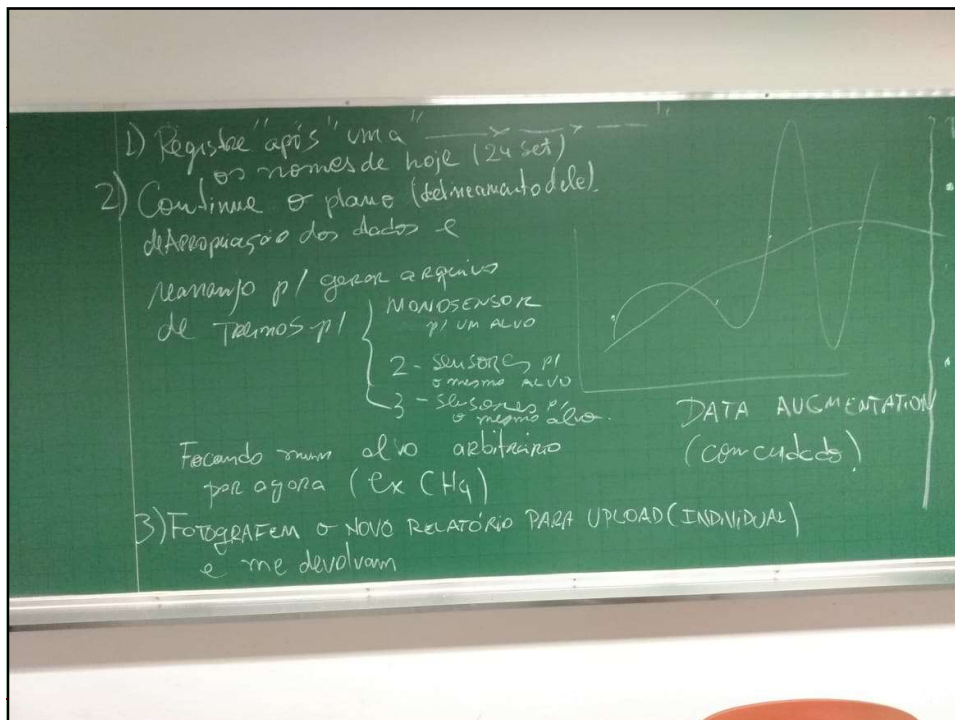 1) Registre "após" uma "
os nomes de hoje (24 set)
2) Continue o plano (delineamento dele).
de Apropriação dos dados e
rearranjo p/ gerar arquivo
de Treinos p/
MONOSENSOR
p/ UM ALVO
2 - sensores p/
o mesmo ALVO
3 - sensores p/
o mesmo alvo.
Focando num alvo arbitrário
por agora (ex CH4)
DATA AUGMENTATION
(com cuidado)
3) FOTOGRAFEM O NOVO RELATÓRIO PARA UPLOAD (INDIVIDUAL)
e me devolvam